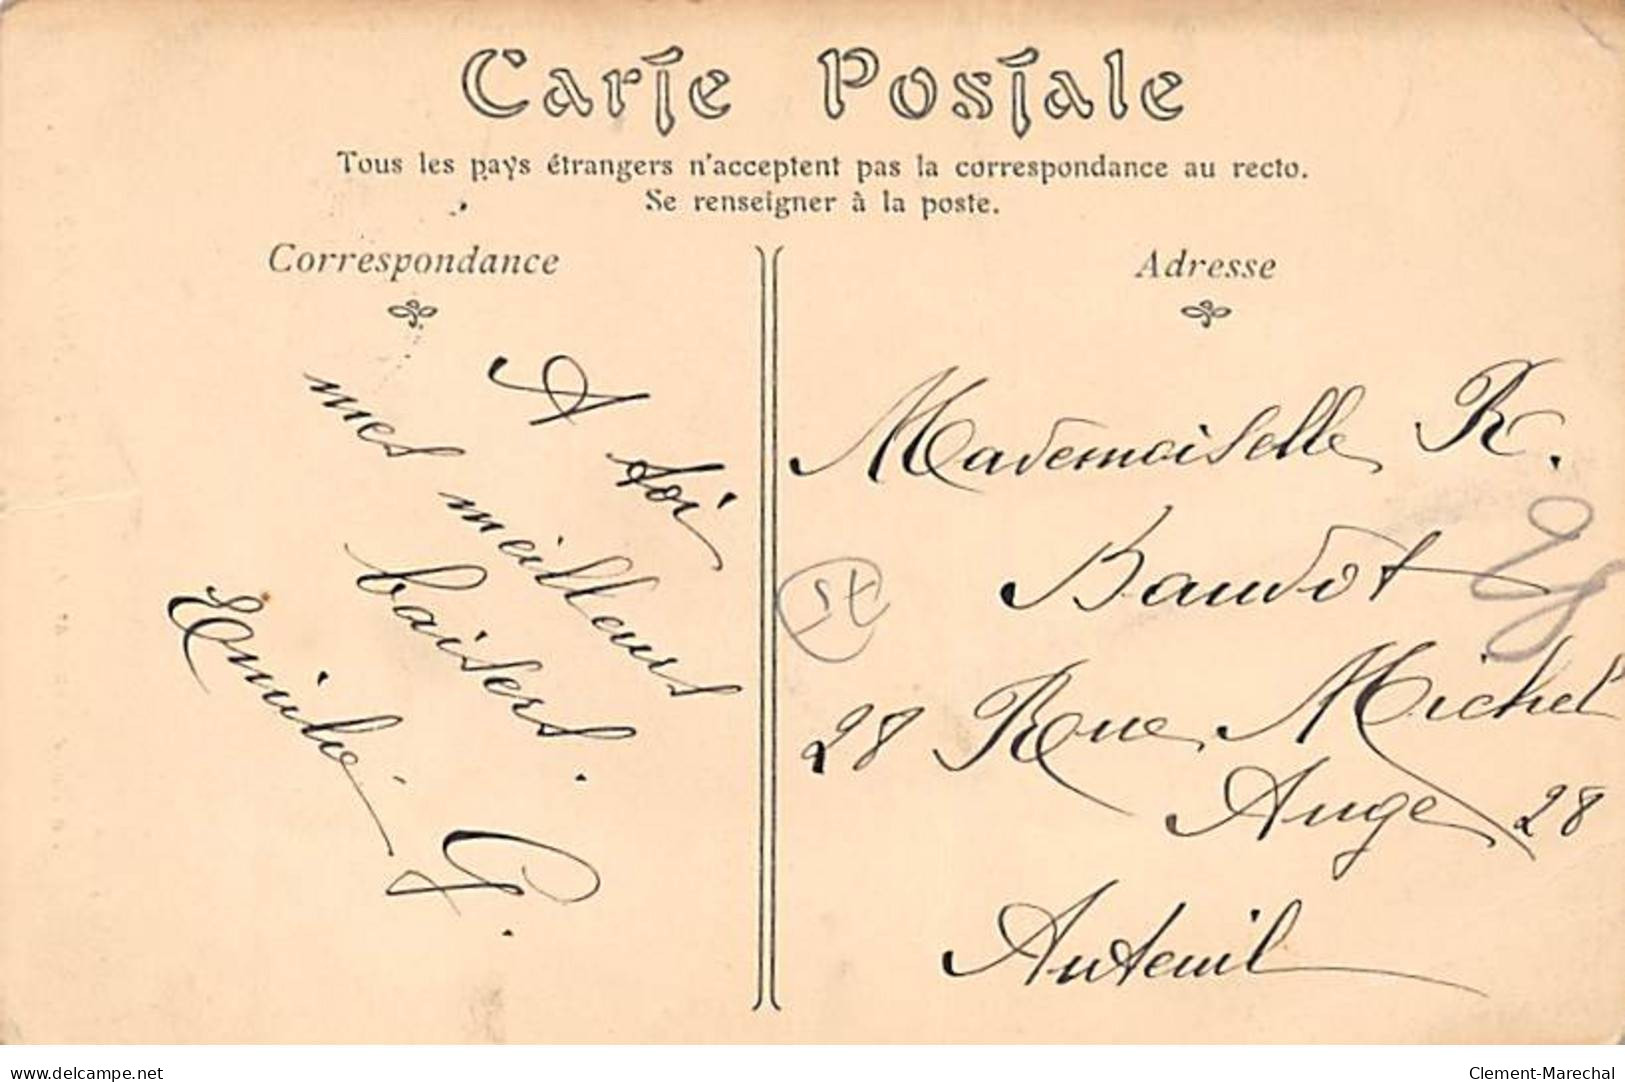 Carte Postale
Tous les pays étrangers n'acceptent pas la correspondance au recto.
Se renseigner à la poste.
Correspondance
A toi
mes meilleurs
baisers.
F.
Adresse
Mademoiselle R.
Baudot
28 Rue Michel
Ange 28
Auteuil
st
www.delcampe.net
Clement-Marechal